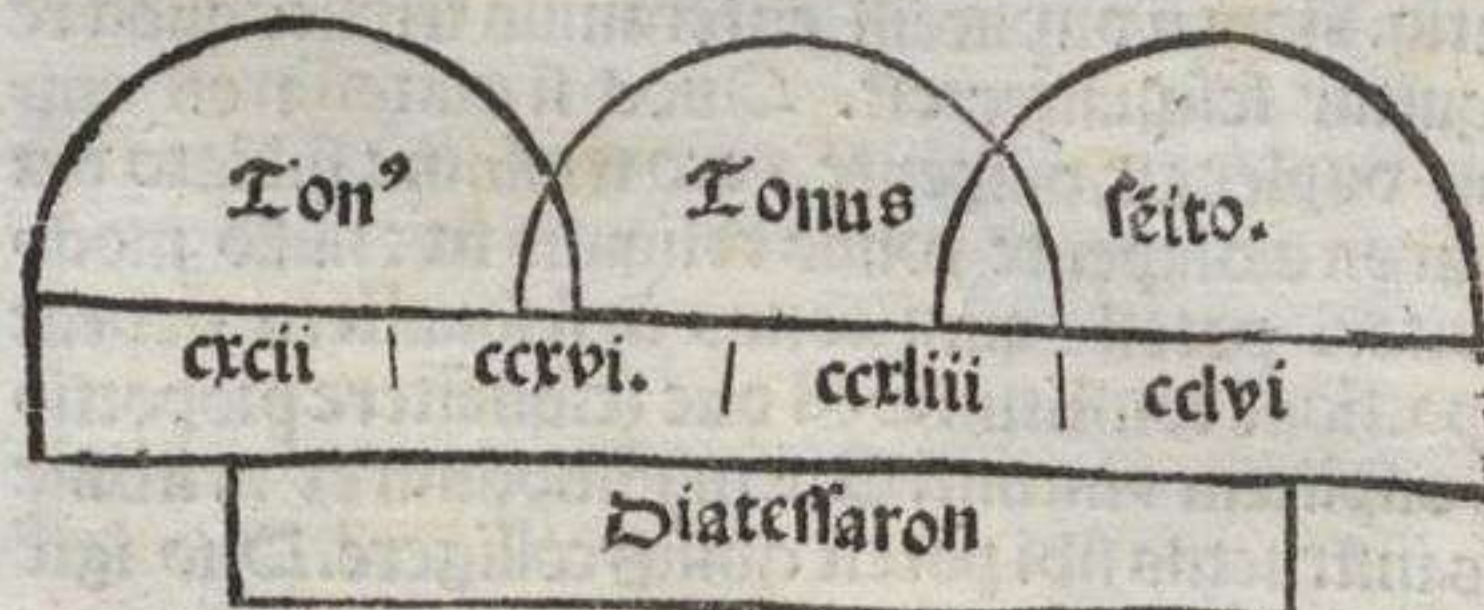 Tonꝰ Tonus sẽito.
cxcii | ccxvi. | ccxliii | cclvi
Diatessaron